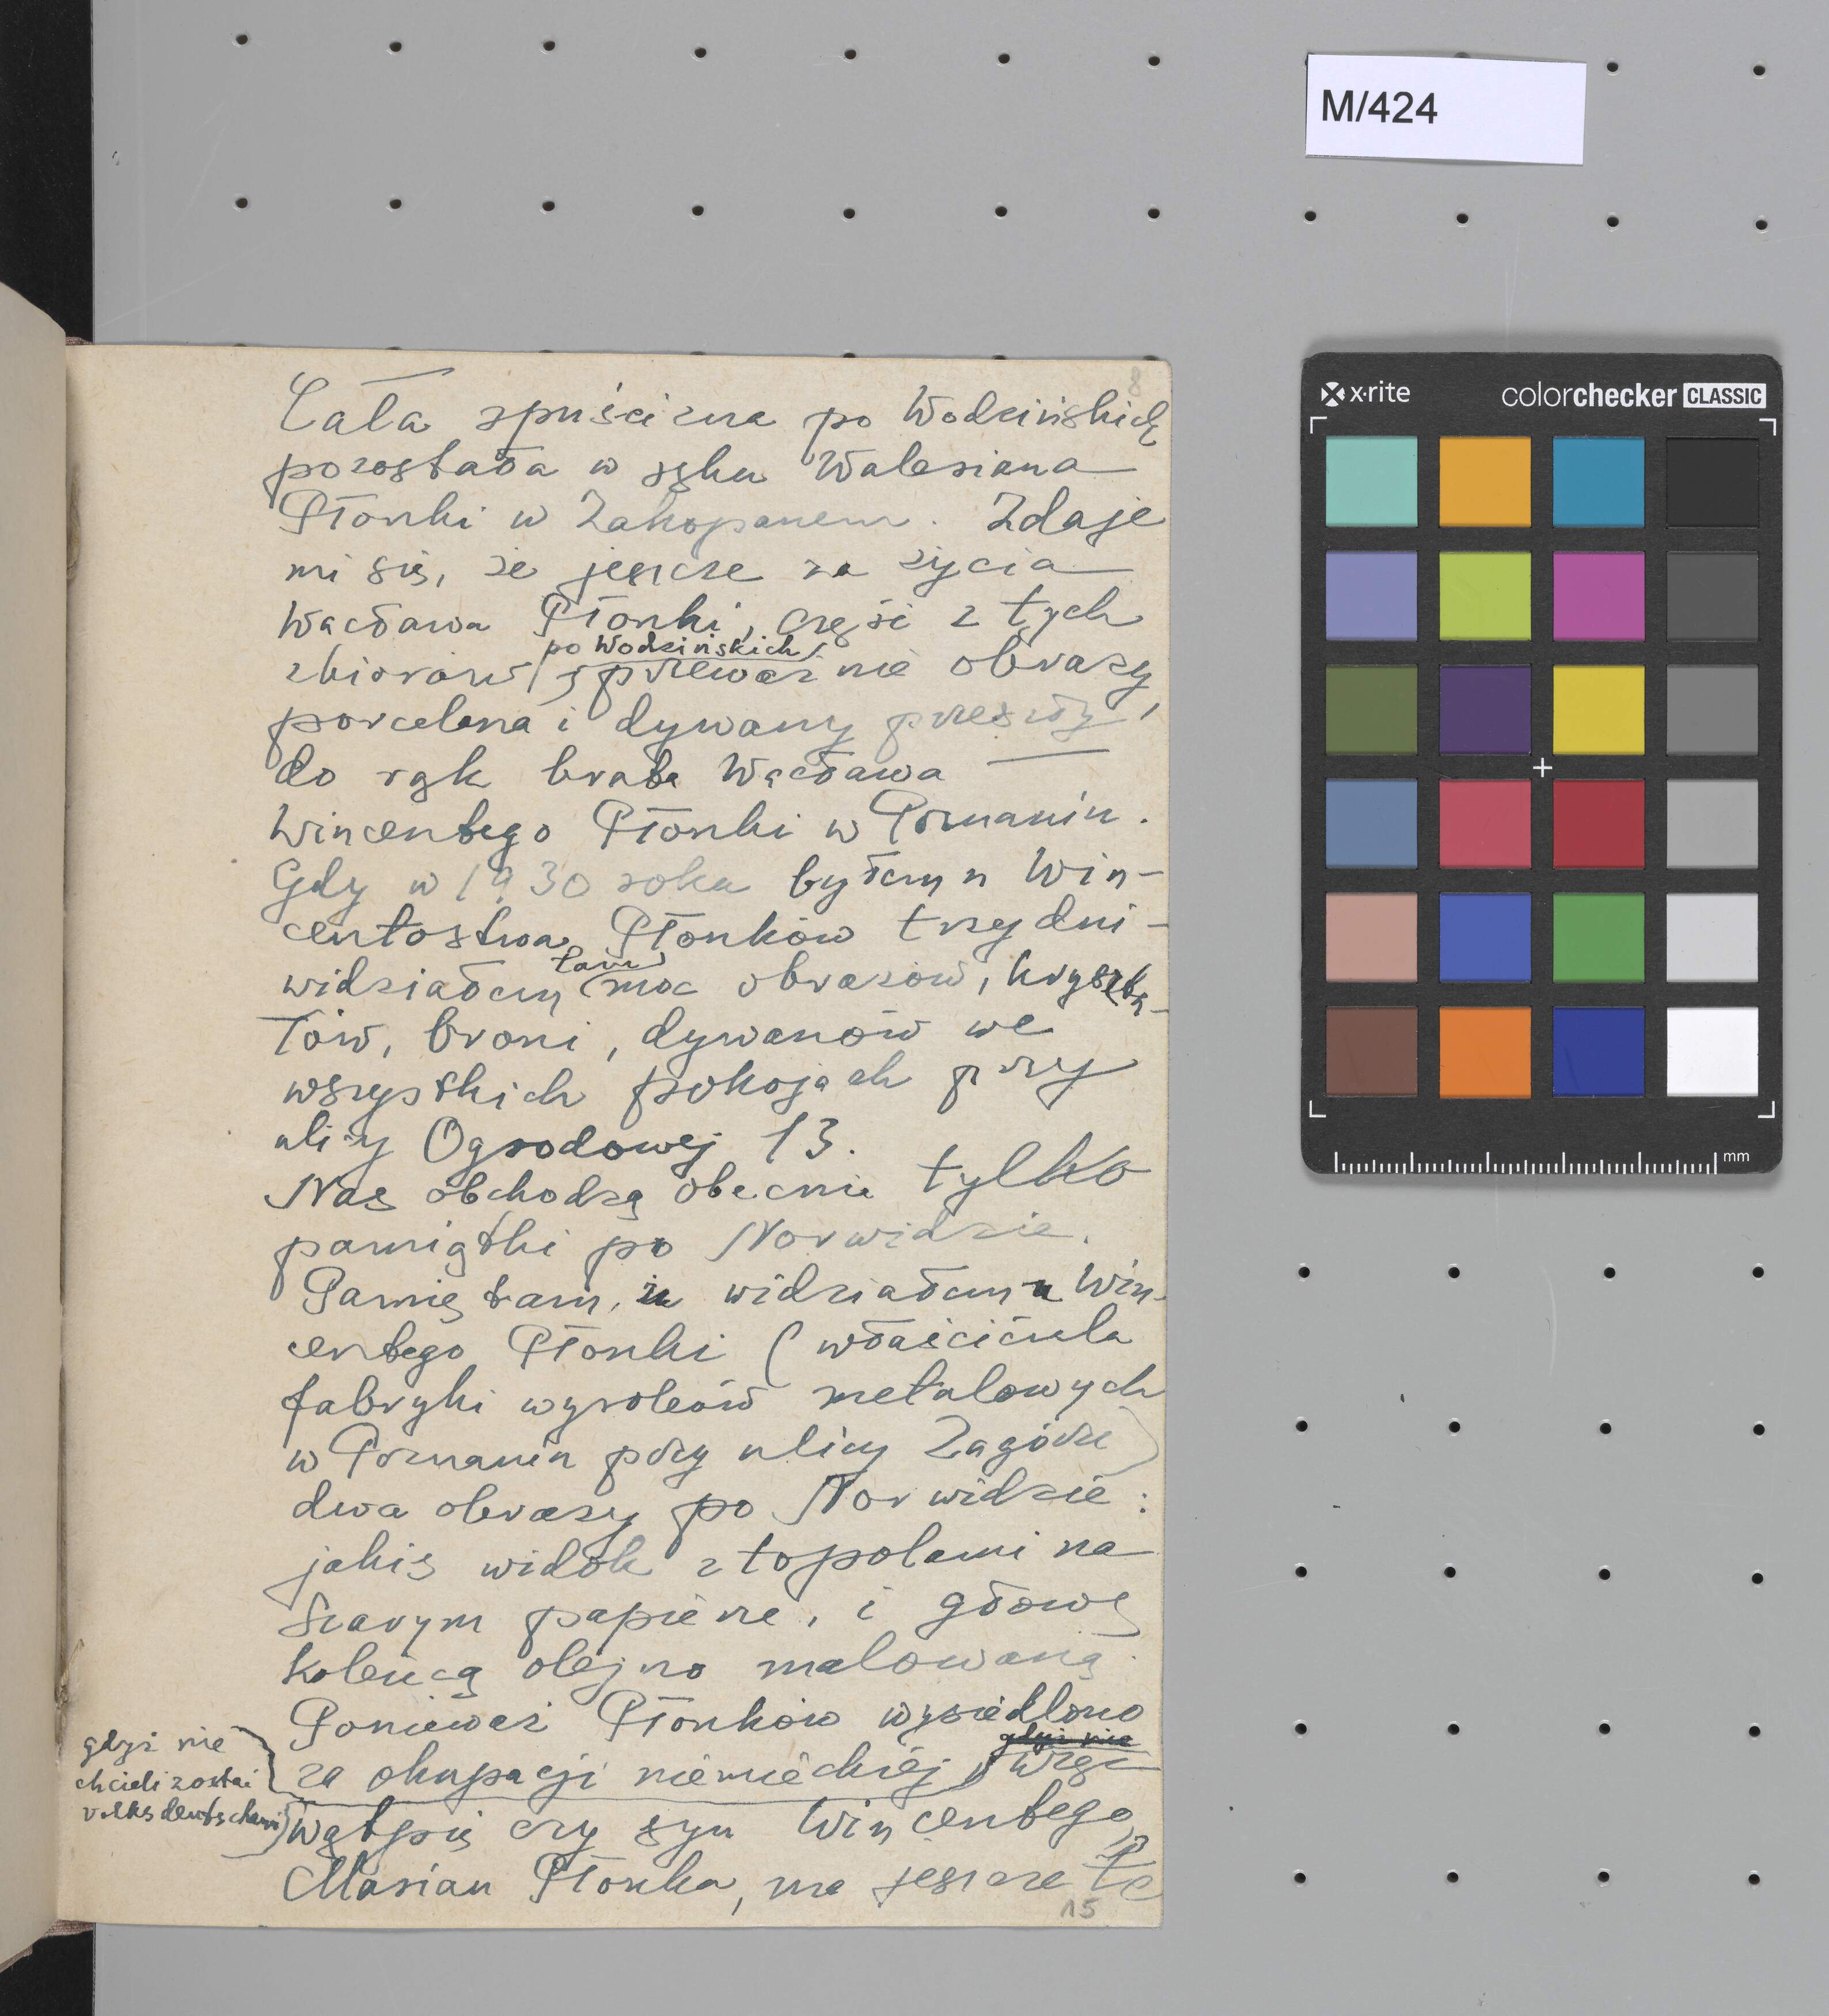 M/424
x·rite
colorchecker CLASSIC
mm
8
Cała spuścizna po Wodzińskich
pozostała w ręku Waleriana
Płonki w Zakopanem. Zdaje
mi się, że jeszcze za życia
Wacława Płonki, część z tych
po Wodzińskich
zbiorów, przeważnie obrazy,
porcelana i dywany przeszły
do rąk brata Wacława
Wincentego Płonki w Poznaniu.
Gdy w 1930 roku byłem u Win-
centostwa Płonków trzy dni -
tam
widziałem moc obrazów, kryszta-
łów, broni, dywanów we
wszystkich pokojach przy
ulicy Ogrodowej 13.
Nas obchodzą obecnie tylko
pamiątki po Norwidzie.
Pamiętam, iż widziałem u Win-
centego Płonki (właściciela
fabryki wyrobów metalowych
w Poznaniu przy ulicy Zagórze)
dwa obrazy po Norwidzie:
jakiś widok z topolami na
szarym papierze, i głowę
kobiecą olejno malowaną.
Ponieważ Płonków wysiedlono
gdyż nie
za okupacji niemieckiej, więc
gdyż nie
chcieli zostać
volksdeutschami
wątpię czy syn Wincentego,
Marian Płonka, ma jeszcze te
15